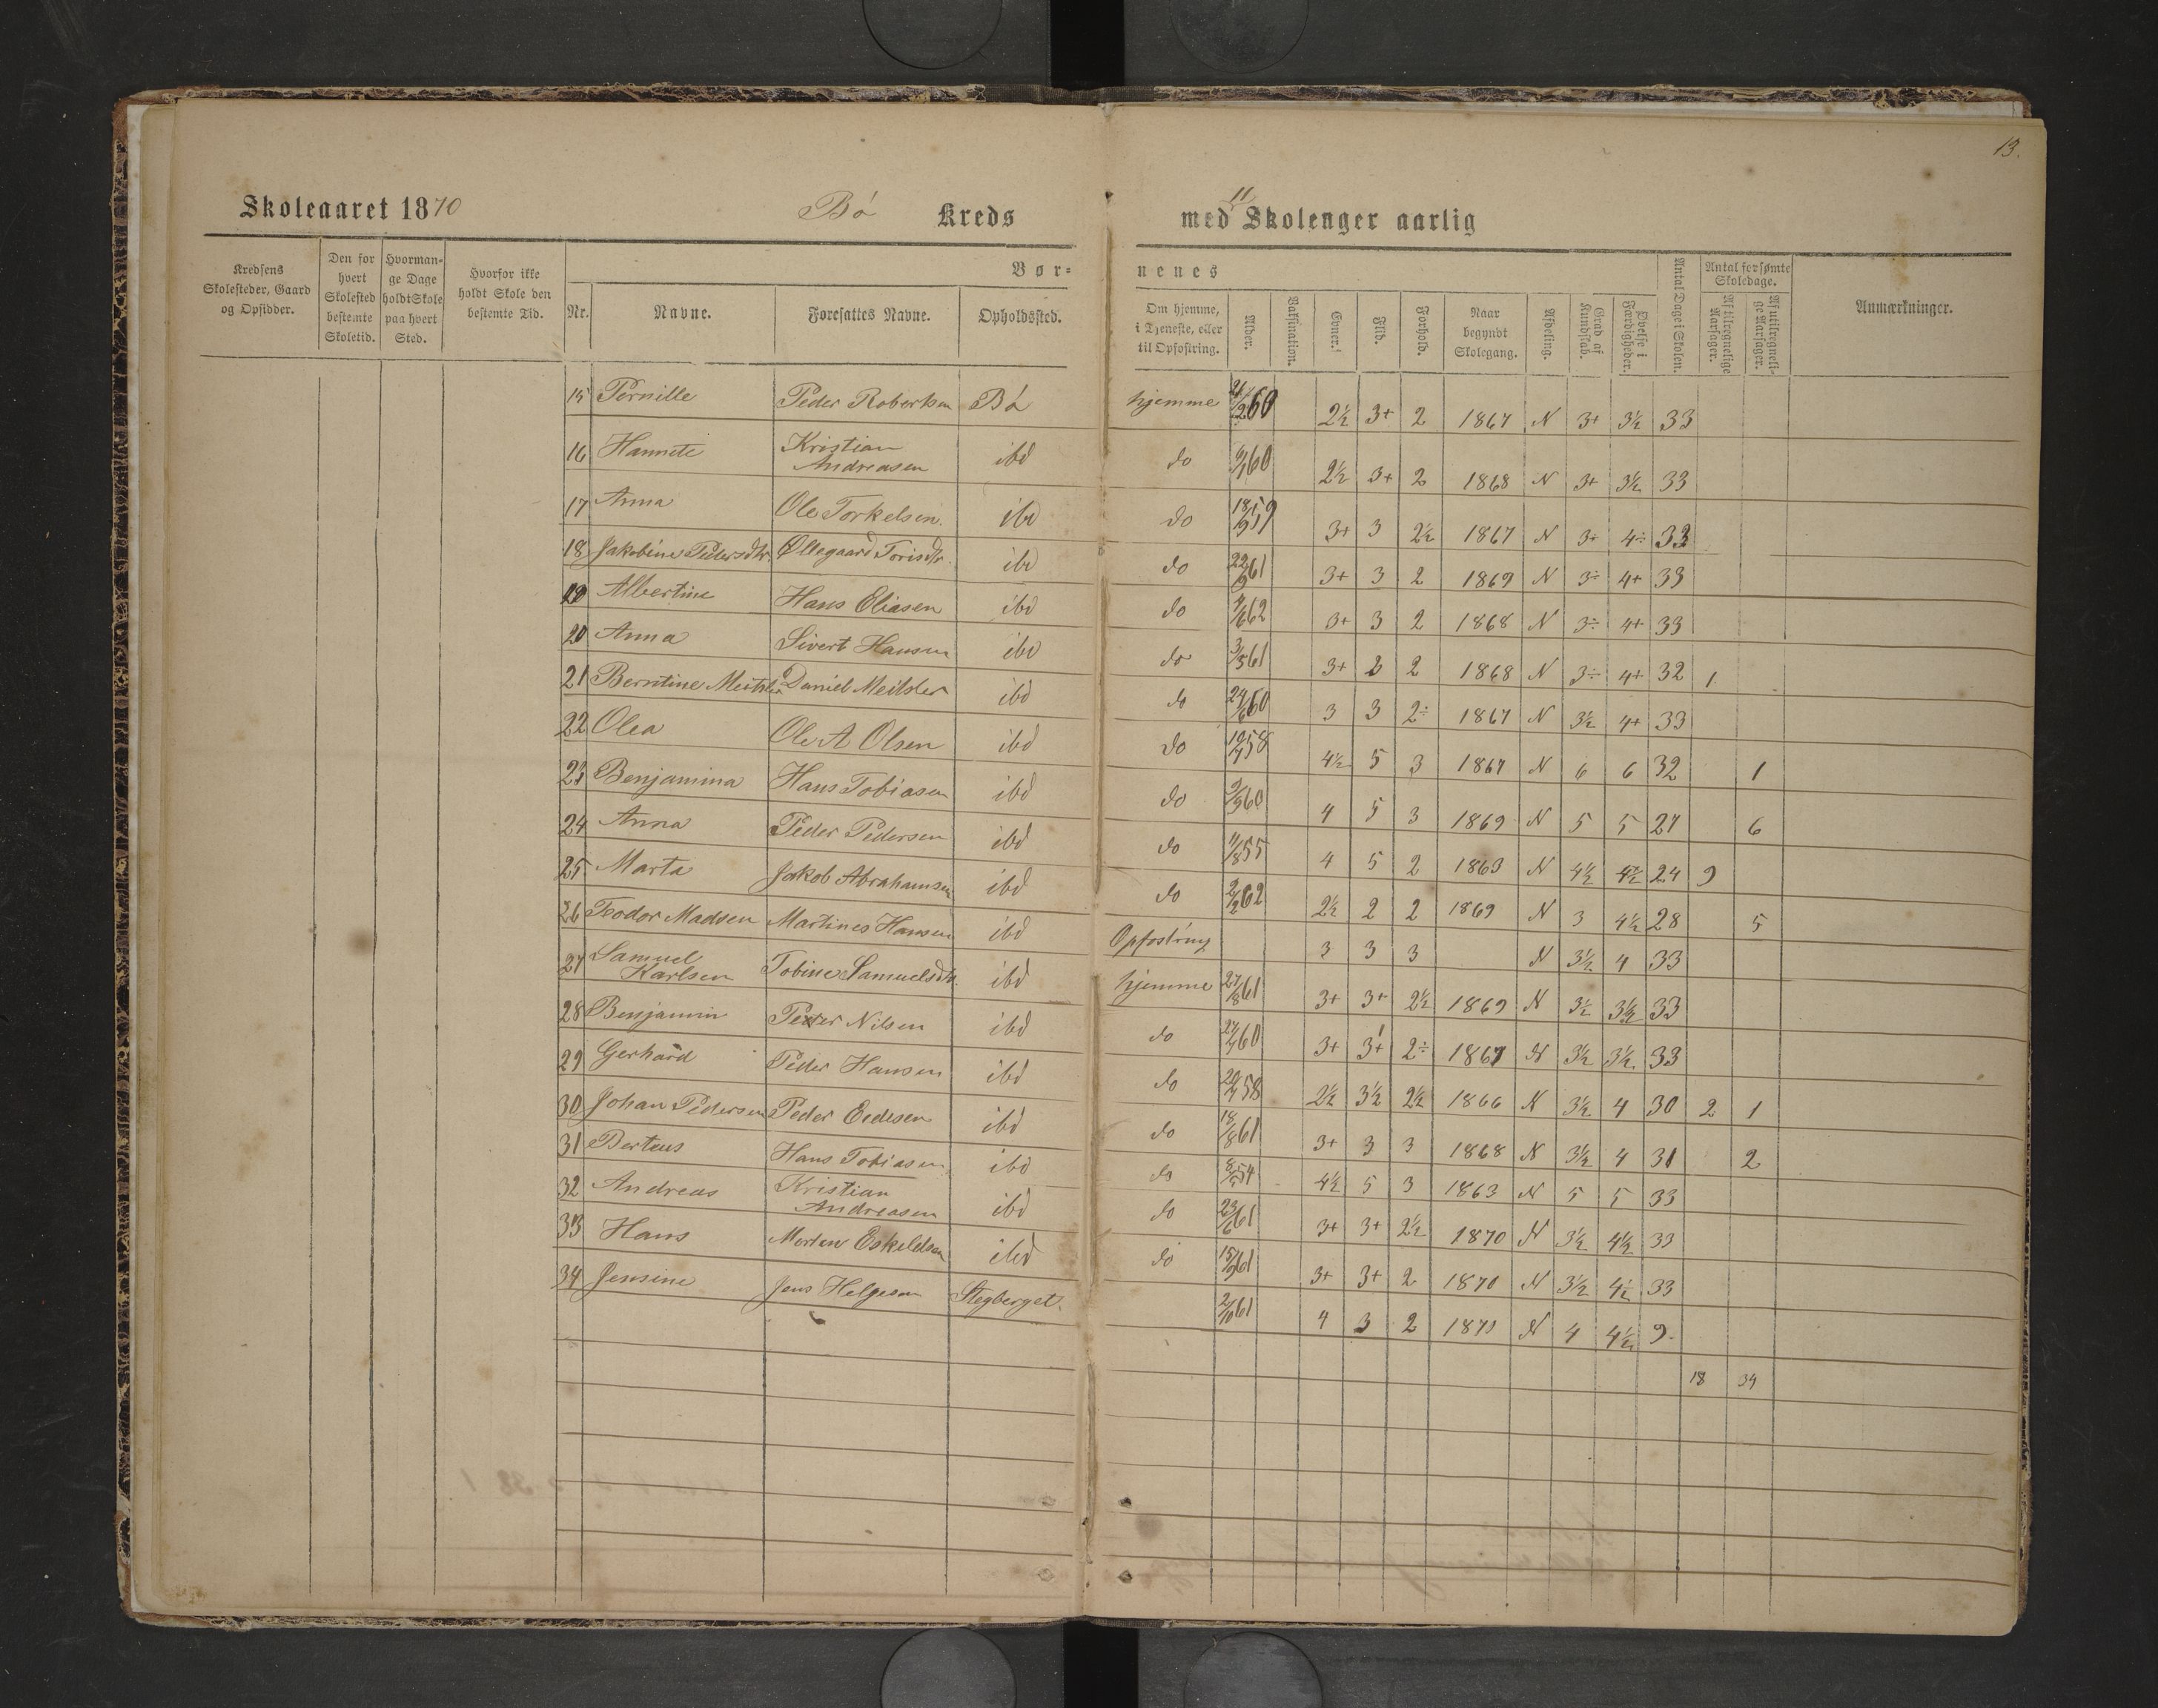 13.
Skoleaaret 1870 Bø Kreds
med 11 Skolenger aarlig
Kredsens Skolesteder, Gaard og Opsidder.
Den for hvert Skolested bestemte Skoletid.
Hvormange Dage holdt Skole paa hvert Sted.
Hvorfor ikke holdt Skole den bestemte Tid.
Bør-
nenes
Nr. Navne. Foresattes Navne. Opholdssted.
Om hjemme, i Tjeneste, eller til Opfostring. Alder. Vaksination. Evner. Flid. Forhold. Naar begyndt Skolegang. Afdeling. Grad af Kundskab. Øvelse i Færdigheder. Antal Dage i Skolen. Antal forsømte Skoledage. Af tilregnelige Aarsager. Af utilregnelige Aarsager. Anmærkninger.
15 Pernille Peder Robertsen Bø hjemme 2½ 3+ 2 1867 N 3+ 3½ 33
16 Hannete Kristian Andreasen ibd do 2½ 3+ 2 1868 N 3+ 3½ 33
17 Anna Ole Torkelsen ibd do 3+ 3 2½ 1867 N 3+ 4÷ 33
18 Jakobine Pedersdtr. Øllegaard Torisdtr. ibd do 22/9 61 3+ 3 2 1869 N 3÷ 4+ 33
19 Albertine Hans Eliasen ibd do 4/6 62 3+ 3 2 1868 N 3÷ 4+ 33
20 Anna Sivert Hansen ibd do 3/5 61 3+ 3 2 1868 N 3÷ 4+ 32 1
21 Berntine Meitsler Daniel Meitsler ibd do 24/6 60 3 3 2÷ 1867 N 3½ 4+ 33
22 Olea Ole A Olsen ibd do 4½ 5 3 1867 N 6 6 32 1
23 Benjamina Hans Tobiasen ibd do 4 5 3 1869 N 5 5 27 6
24 Anna Peder Pedersen ibd do 11/8 55 4 5 2 1863 N 4½ 4½ 24 9
25 Marta Jakob Abrahamsen ibd do 2/2 62 2½ 2 2 1869 N 3 4½ 28 5
26 Teodor Madsen Martines Hansen ibd Opfostring 3 3 3 N 3½ 4 33
27 Samuel Karlsen Tobine Samuelsdtr. ibd hjemme 27/8 61 3+ 3+ 2½ 1869 N 3½ 3½ 33
28 Benjamin Peder Nilsen ibd do 3+ 3+ 2÷ 1867 N 3½ 3½ 33
29 Gerhard Peder Hansen ibd do 2½ 3½ 2½ 1866 N 3½ 4 30 2 1
30 Johan Pedersen Peder ibd do 18/8 61 3+ 3 3 1868 N 3½ 4 31 2
31 Berteus Hans Tobiasen ibd do 4½ 5 3 1863 N 5 5 33
32 Andreas Kristian Andreasen ibd do 23/6 61 3+ 3+ 2½ 1870 N 3½ 4½ 33
33 Hans Morten Eskeldsen ibd do 15/9 61 3+ 3+ 2 1870 N 3½ 4½ 33
34 Jensine Jens Helgesen Stegberget. 2/10 61 4 3 2 1870 N 4 4½ 9.
18 34